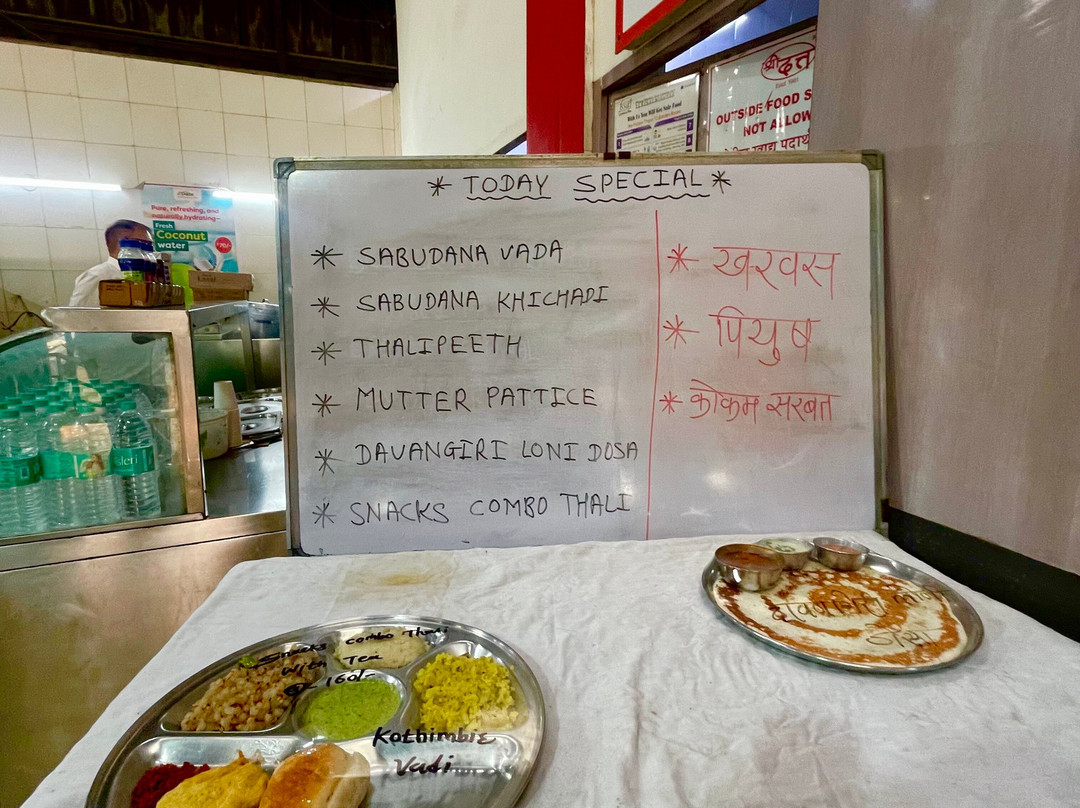 * TODAY SPECIAL *
* SABUDANA VADA
* SABUDANA KHICHADI
* THALIPEETH
* MUTTER PATTICE
* DAVANGIRI LONI DOSA
* SNACKS COMBO THALI
* खरवस
* पियुष
* कोकम सरबत
श्री दत्त
OUTSIDE FOOD
NOT ALLOW
खाद्य पदार्थ
With Us You Will Get Safe Food
Pure, refreshing, and
naturally hydrating—
Fresh
Coconut
water
Snacks combo Thali
with Tea
@ 160/-
Kothimbir
Vadi
दावणगिरी लोणी
डोसा